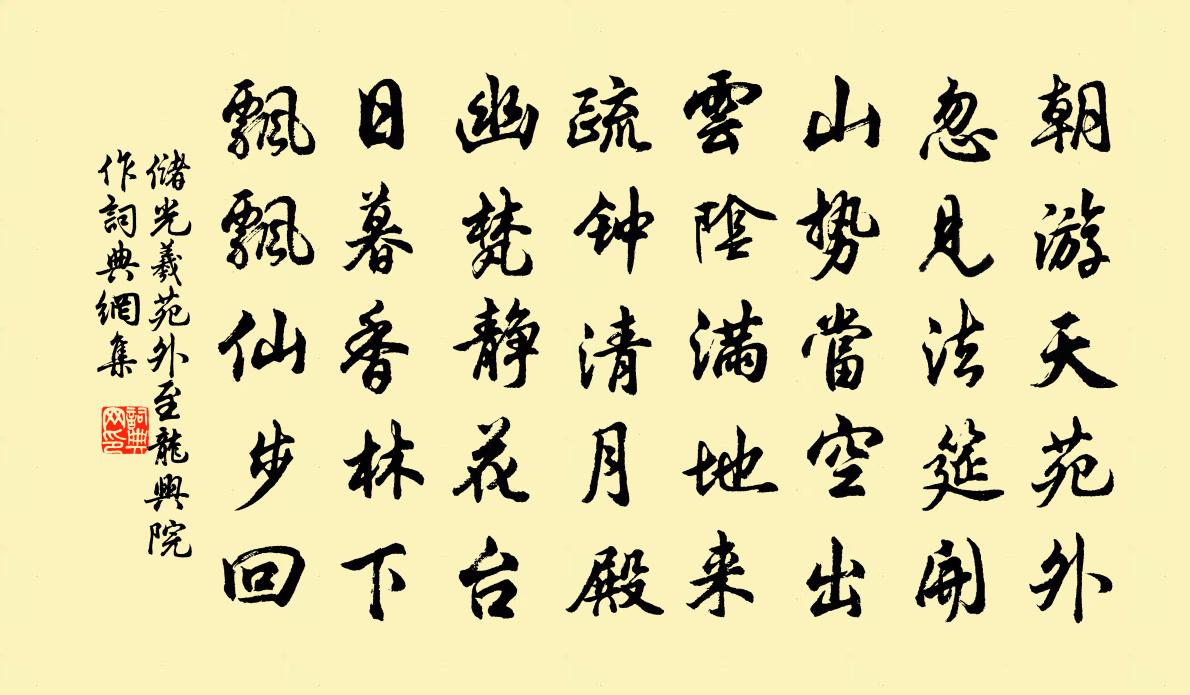 朝游天苑外
忽見法筵開
山势當空出
雲陰滿地来
疏钟清月殿
幽梵静花台
日暮香林下
飄飄仙步回
儲光羲苑外至龍興院
作詞典網集
詞典网印